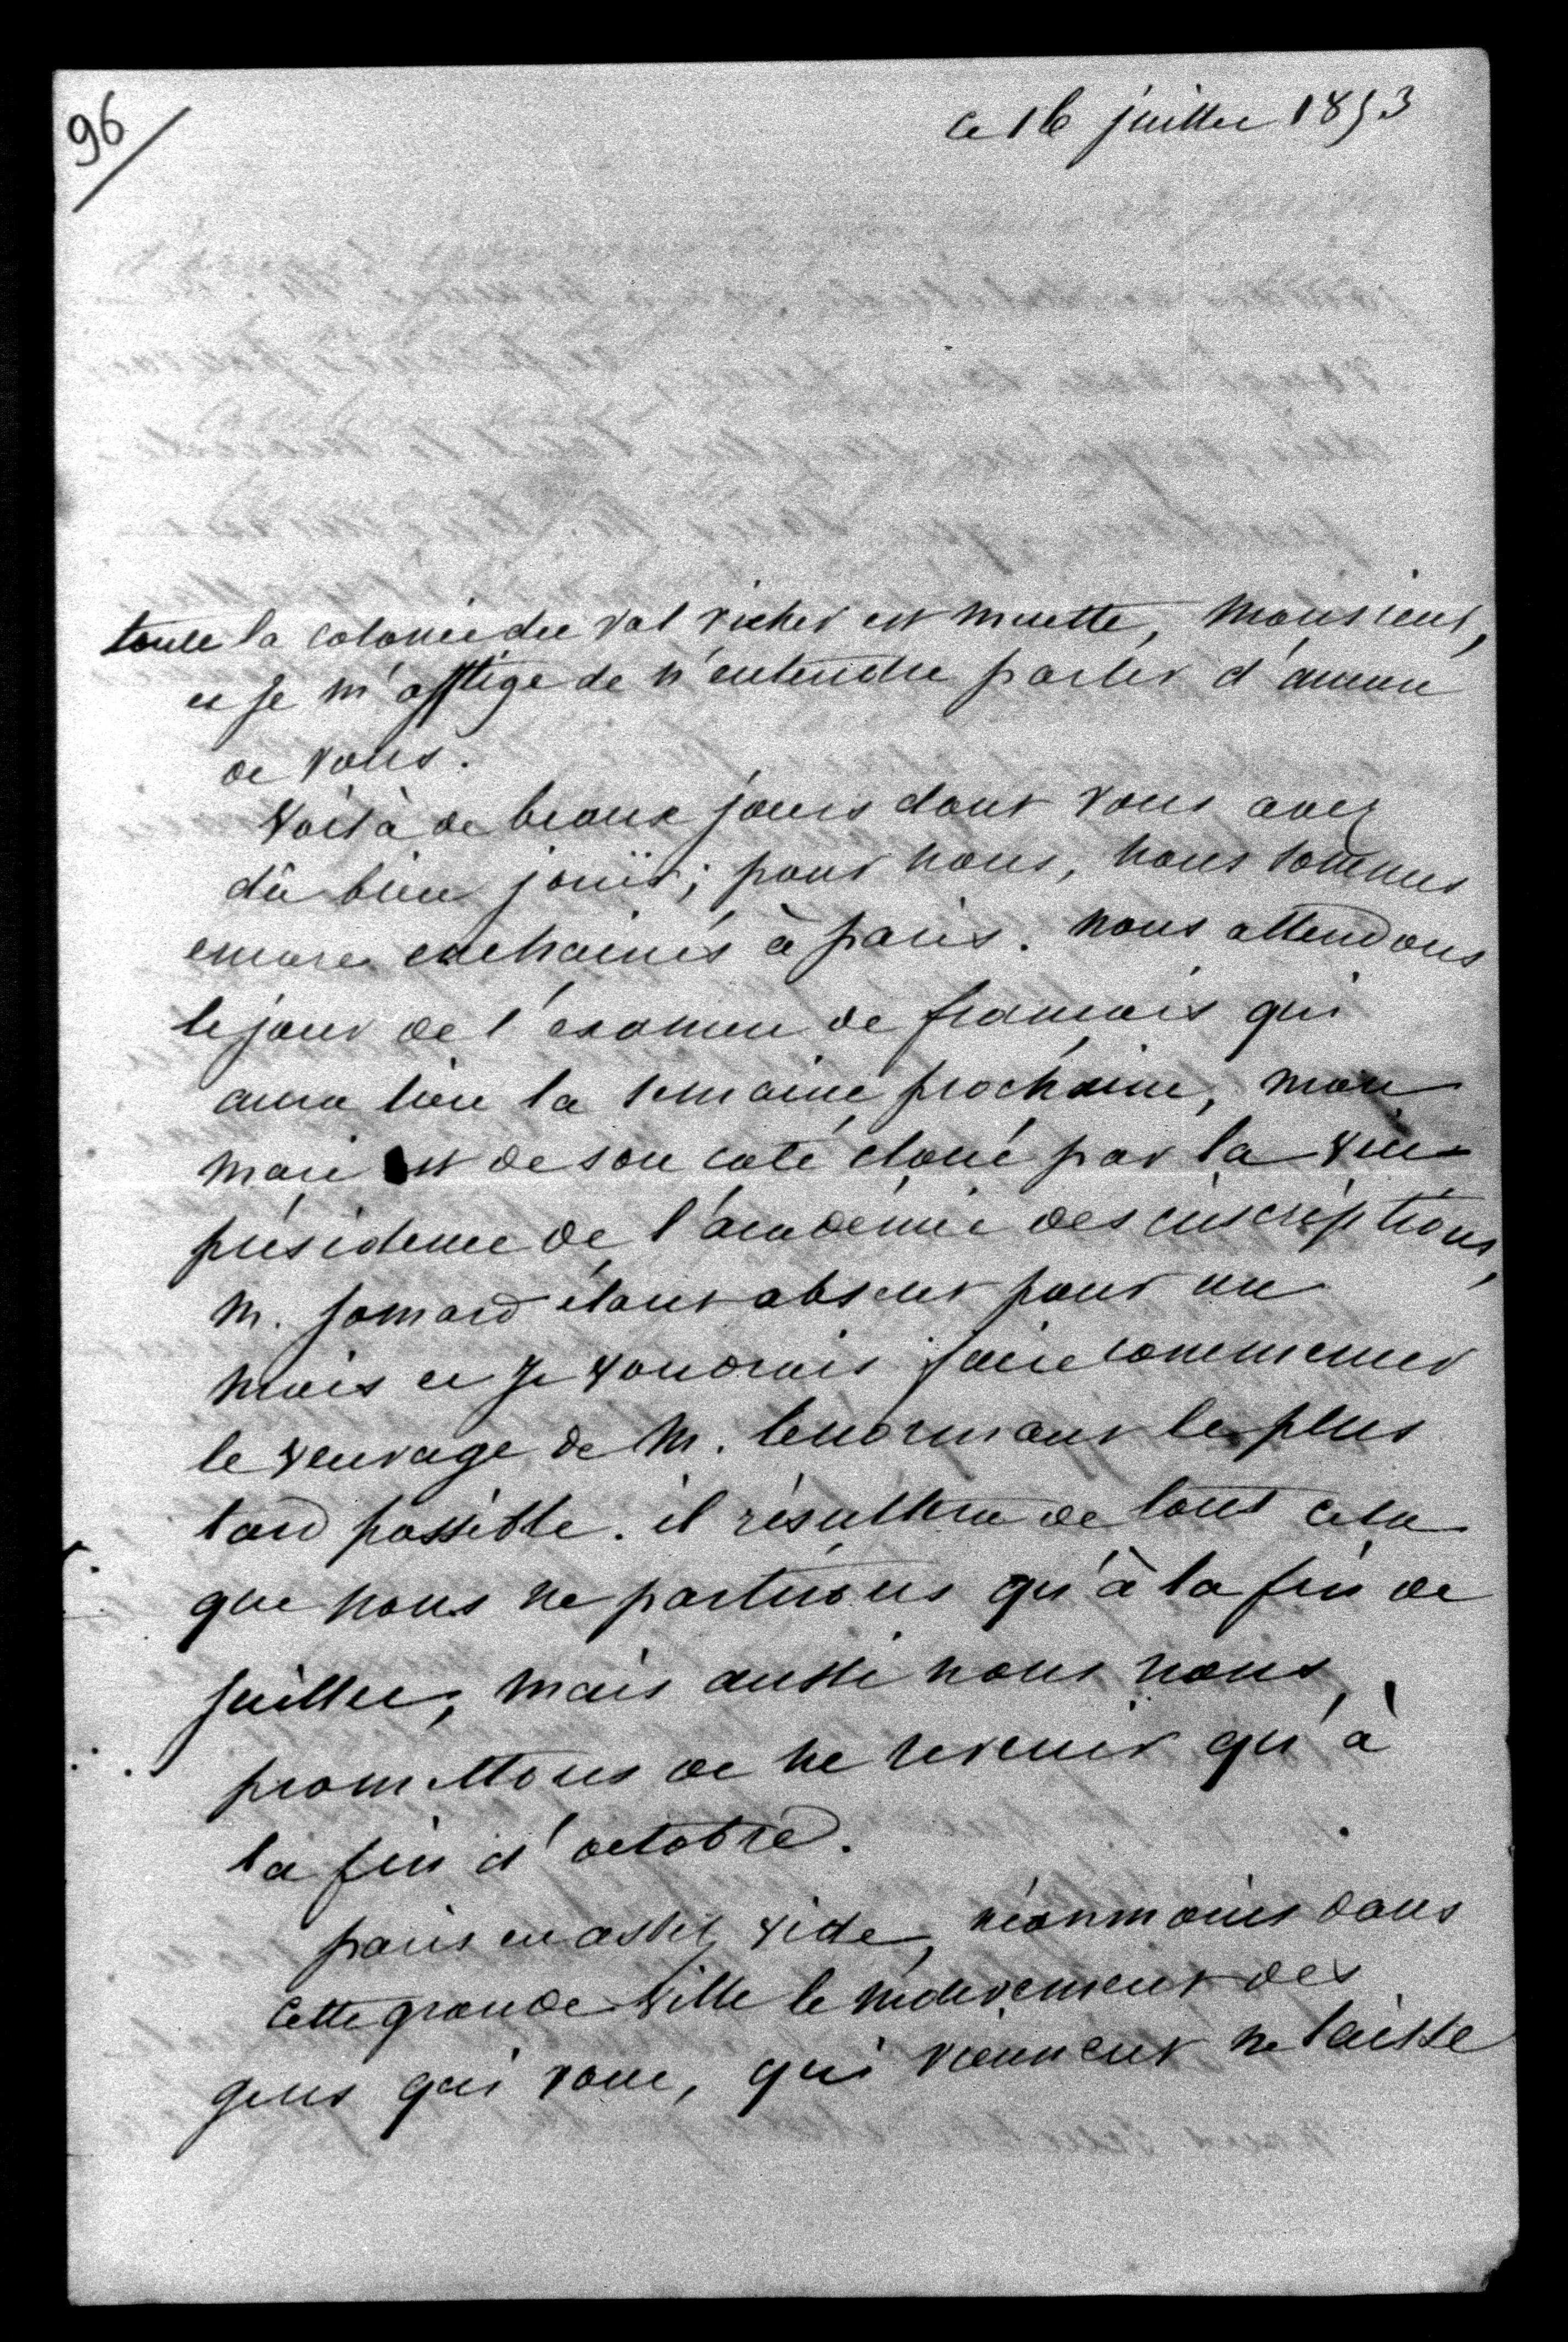 96
ce 16 juillet 1853
toute la colonie du val richer est muette, Monsieur,
et je m'afflige de n'entendre parler d'aucun
de vous.
voilà de beaux jours dont vous avez
dû bien jouir; pour nous, nous sommes
encore enchainés à paris. nous attendons
le jour de l'examen de françois qui
aura lieu la semaine prochaine, mon
mari est de son coté cloué par la vice
présidence de l'académie des inscriptions,
M. Jomard étant absent pour un
mois et je voudrais faire commencer
le veuvage de M. lenormant le plus
tard possible. il résultera de tout cela
que nous ne partirons qu'à la fin de
juillet, mais aussi nous nous
promettons de ne revenir qu'à
la fin d'octobre.
paris est assez vide, néanmoins dans
cette grande ville le mouvement des
gens qui vont, qui viennent ne laisse